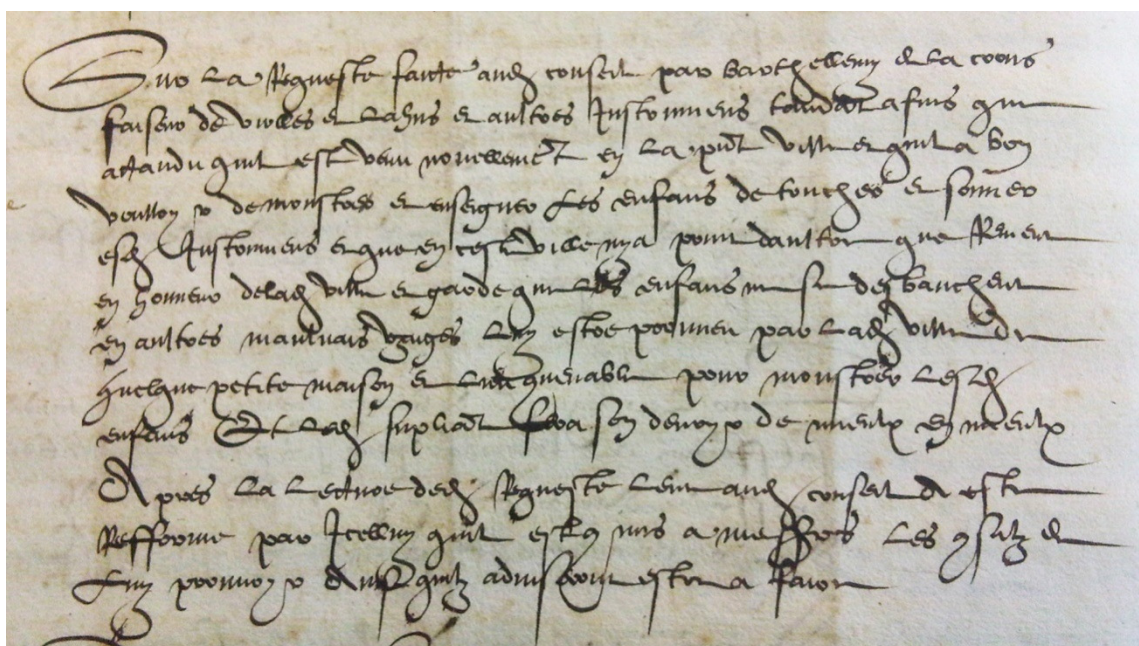 Sur la Requeste faicte aud conseil par barthellemy de la coons
faiseur de violles et lahus et aultres Instrumens tendant a fins que
actandu quil est venu nouvellement en la pnt ville et quil a bon
voulloyr de monstrer et enseigner les enfans de toucher et sonner
esd Instrumens et que en ceste ville ny a point daultre que Revient
en honneur de lad ville et garde que les enfans ne se desbauchent
en aultres maulvais usaiges luy estre prouveu par lad ville de
quelque petite maison et lieu quenable pour monstrer lesd
enfans Et led supliant fera son devoyr de mieulx en mieulx
Apres la lecture de lad Requeste leu aud conseil a este
Refforme par Icelluy quil est comis a messrs les consulz de
luy prouvoyr ainsi quilz adviseront estre a faire